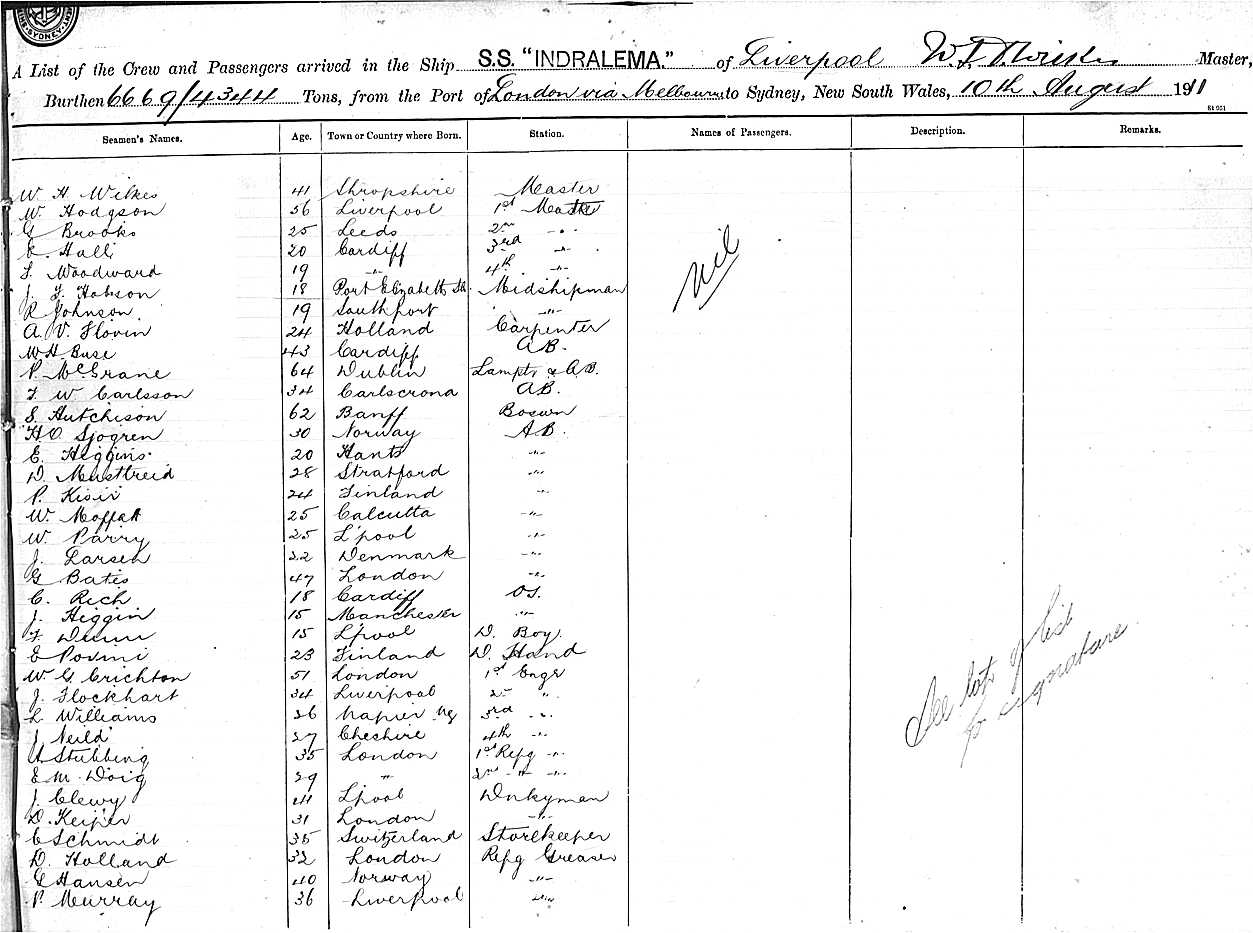 SYDNEY
A List of the Crew and Passengers arrived in the Ship S.S. "INDRALEMA." of Liverpool Master,
Burthen 6669/4344 Tons, from the Port of London via Melbourne to Sydney, New South Wales, 10th August 1911
St 961
Seamen's Names. Age. Town or Country where Born. Station. Names of Passengers. Description. Remarks.
W. H. Wilkes 41 Shropshire Master
W. Hodgson 36 Liverpool 1st Mate
G Brooks 25 Leeds 2nd -"-
E. Hall 20 Cardiff 3rd -"-
F. Woodward 19 -"- 4th -"-
J. F. Hobson 18 Port Elizabeth Midshipman
Nil
R Johnson 19 Southport -"-
A. V. Florin 24 Holland Carpenter
W H Buse 43 Cardiff AB.
P. McGrane 64 Dublin Lampts & AB.
F. W Carlsson 34 Carlscrona AB.
S. Hutchison 62 Banff Boswn
H O. Sjogren 30 Norway AB.
E. Higgins 20 Hants -"-
D. 28 Stratford -"-
P. 24 Finland -"-
W. Moffatt 25 Calcutta -"-
W. Parry 25 L'pool -"-
J. Larsen 22 Denmark -"-
G Bates 47 London -"-
C. Rich 18 Cardiff OS.
J. Higgin 15 Manchester -"-
F. Dunn 15 L'pool D. Boy.
E 23 Finland D. Hand
W. G. Crichton 51 London 1st Engr
J. Flockhart 34 Liverpool 2nd "
L. Williams 26 Napier NZ 3rd -"-
J Neild 27 Cheshire 4th -"-
Stubbing 35 London 1st Refg -"-
E M. Doig 29 -"- 2nd -"- -"-
J. Clewy 41 L'pool Dnkyman
D. Keijer 31 London -"-
C Schmidt 35 Switzerland Storekeeper
D. Holland 32 London Refg Greaser
G Hansen 40 Norway -"-
P. Murray 36 Liverpool -"-
See top of list
for signature